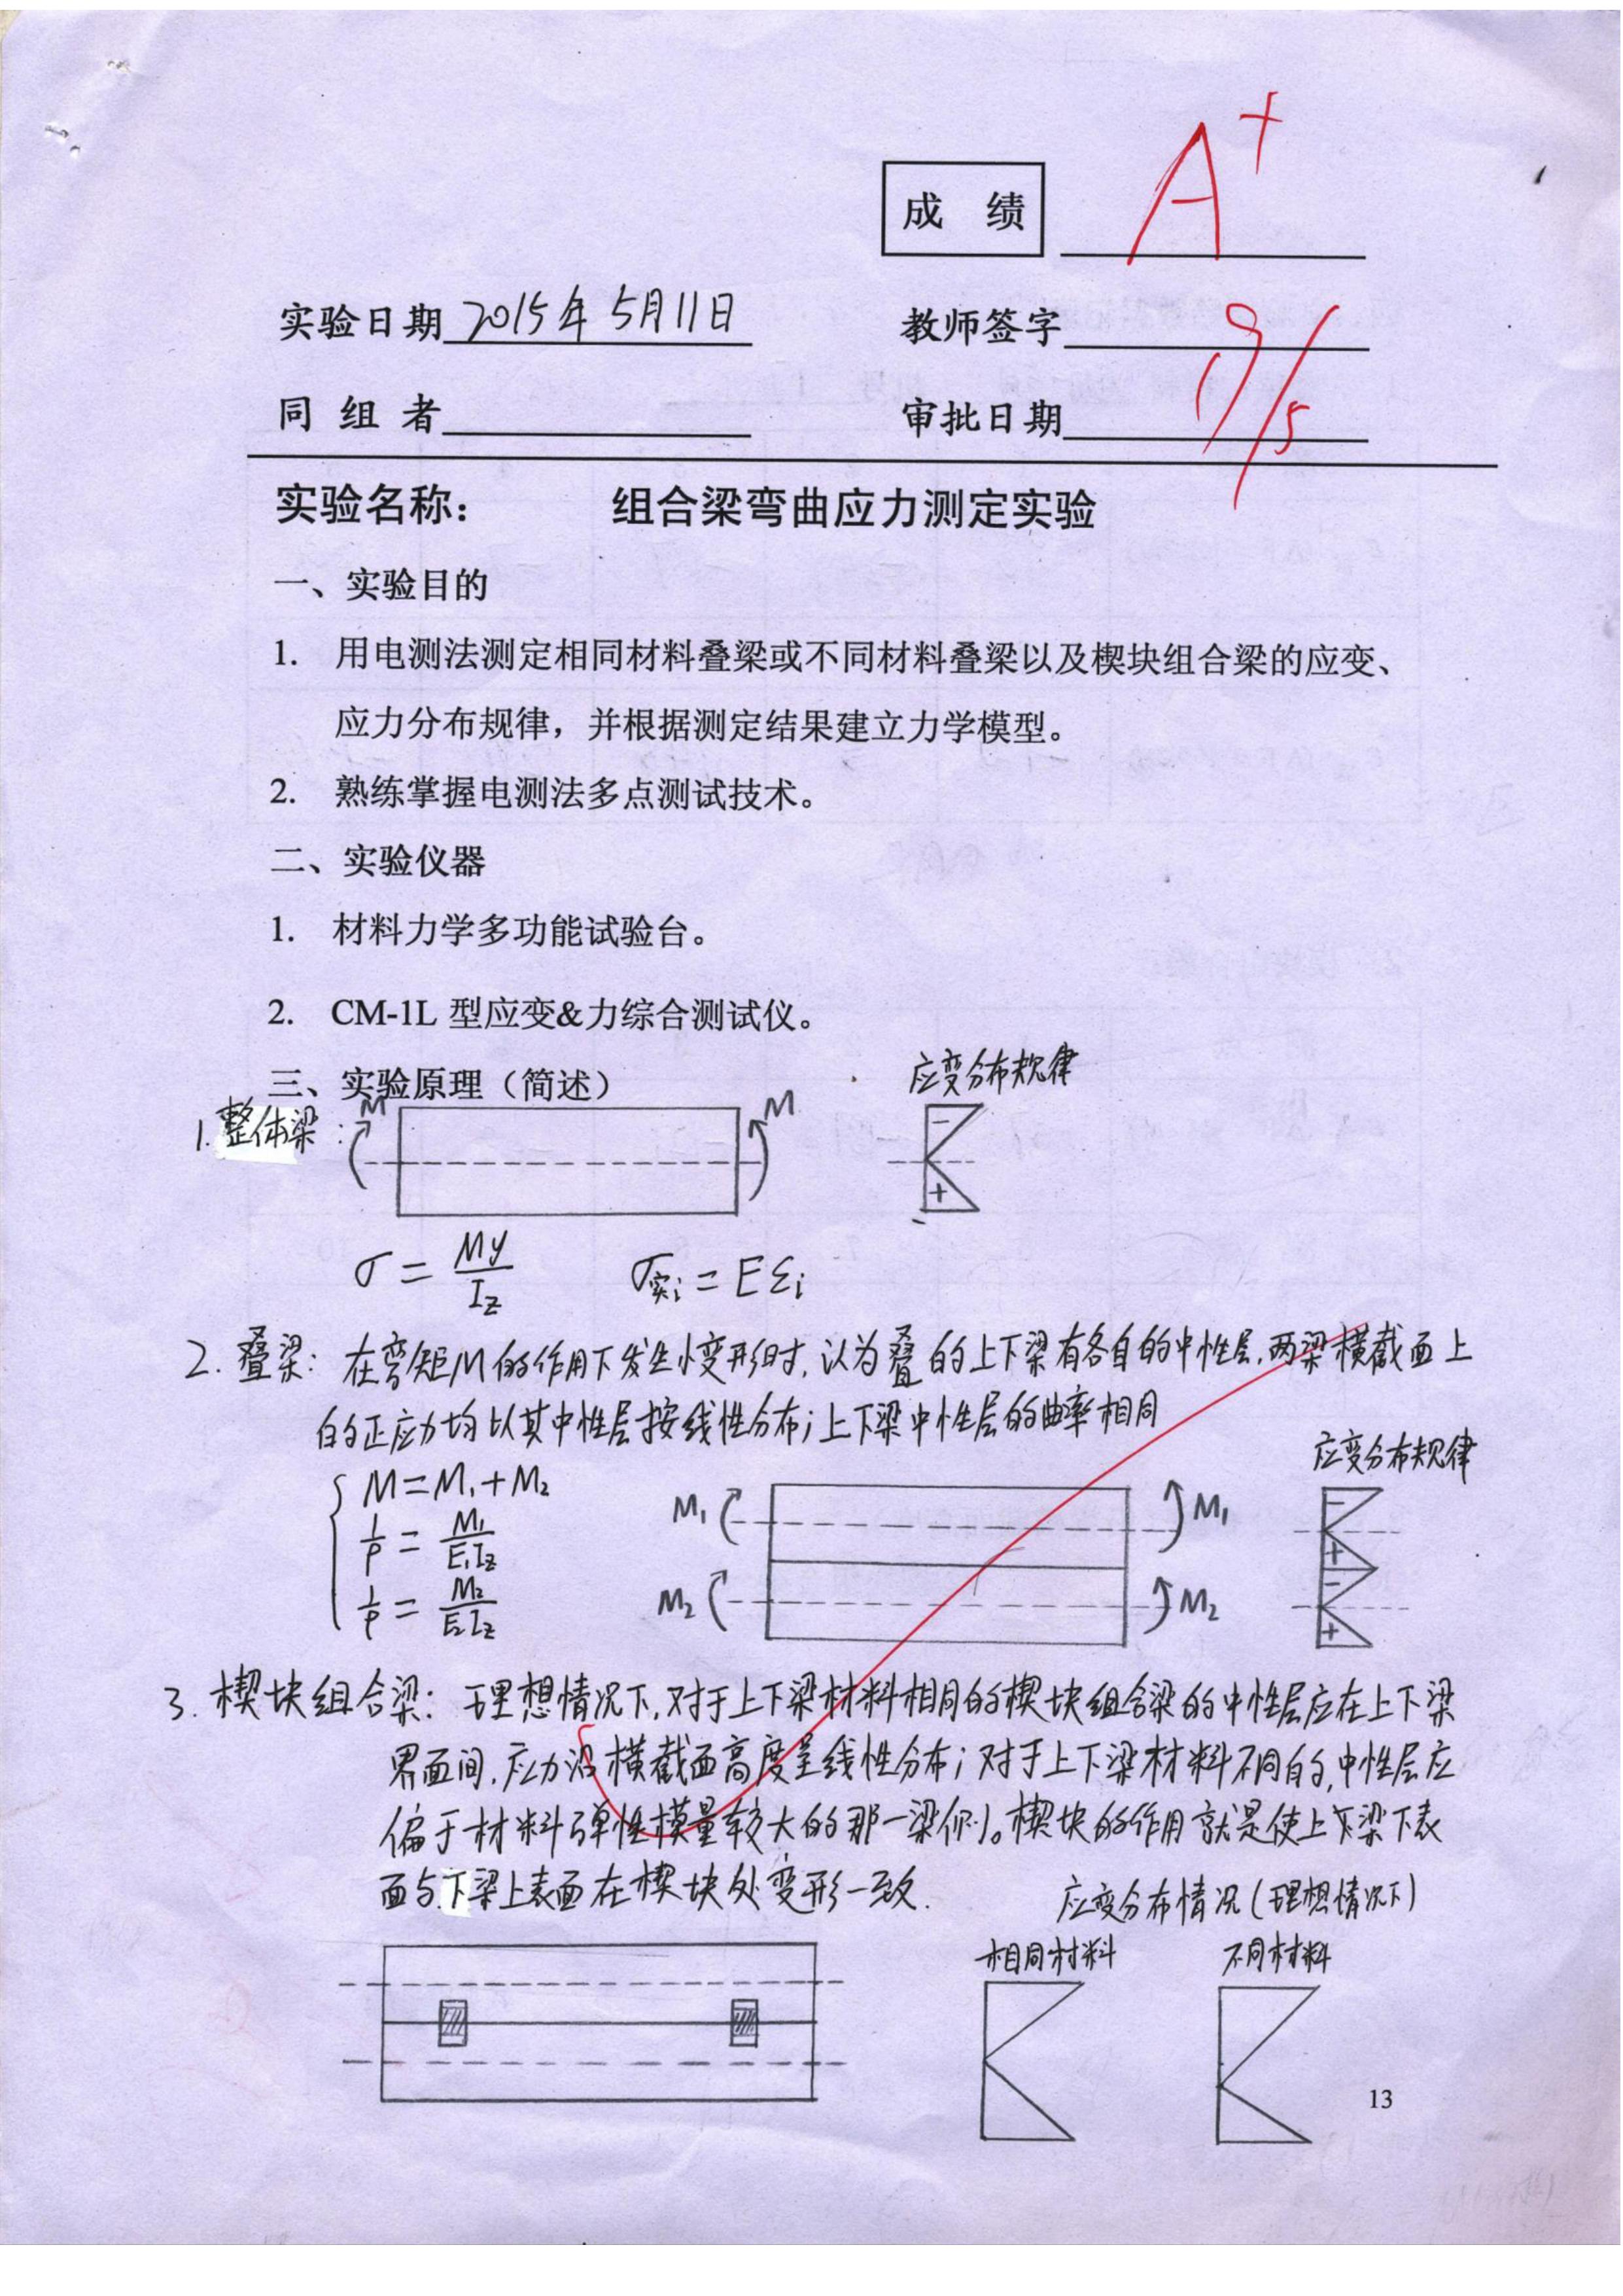 成 绩 A+
实验日期 2015年5月11日 教师签字
同 组 者 审批日期 19/5
实验名称： 组合梁弯曲应力测定实验
一、实验目的
1. 用电测法测定相同材料叠梁或不同材料叠梁以及楔块组合梁的应变、
应力分布规律，并根据测定结果建立力学模型。
2. 熟练掌握电测法多点测试技术。
二、实验仪器
1. 材料力学多功能试验台。
2. CM-1L 型应变&力综合测试仪。
三、实验原理（简述）
应变分布规律
1. 整体梁：
M M
−
+
σ = My/Iz σ实i = Eεi
2. 叠梁：在弯矩M的作用下发生小变形时，认为叠的上下梁有各自的中性层，两梁横截面上
的正应力均以其中性层按线性分布；上下梁中性层的曲率相同
应变分布规律
M = M₁ + M₂
1/ρ = M₁/E₁Iz
1/ρ = M₂/E₂Iz
M₁ M₁
M₂ M₂
−
+
−
+
3. 楔块组合梁：理想情况下，对于上下梁材料相同的楔块组合梁的中性层应在上下梁
界面间，应力沿横截面高度呈线性分布；对于上下梁材料不同的，中性层应
偏于材料弹性模量较大的那一梁侧。楔块的作用就是使上梁下表
面与下梁上表面在楔块处变形一致.
应变分布情况（理想情况下）
相同材料 不同材料
13